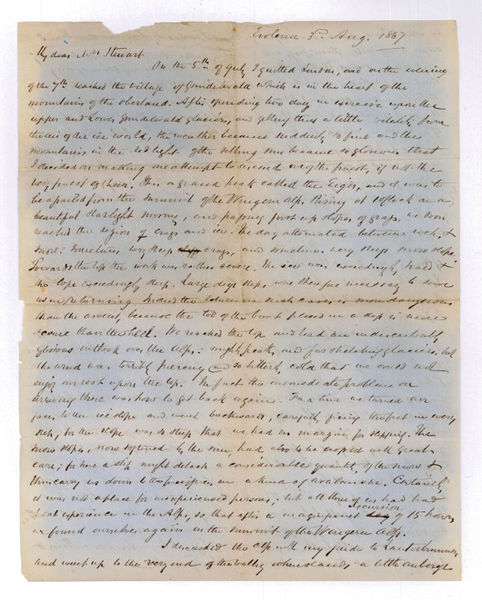 Evolena 3rd Aug. 1867
My dear Mrs Steuart.
On the 5th of July I quitted London, and on the evening
of the 7th reached the village of Grindelwald which is in the heart of the
mountains of the oberland. After spending two days in exercise upon the
upper and Lower Grindelwald glaciers, and getting thus a little vitality from
the air of the ice world, the weather became suddenly so fine and the
mountains in the red light of the setting sun became so glorious that
I decided on making an attempt to ascend one of the finest, if not the
very finest of them. It is a grand peak called the Eiger, and it was to
be attacked from the summit of the Wengern Alp. Rising at 1 o'clock on a
beautiful starlight morning, and passing first up slopes of grass, we soon
reached the region of crags and ice. The day alternated between rock, &
snow: sometimes very steep crags, and sometimes very steep snow slopes.
Towards the top the work was rather severe. The ice was exceedingly hard &
the slope exceedingly steep. Large deep steps were therefore necessary to secure
us in returning. Indeed the return in such cases is more dangerous
than the ascent, because the toe of the boot placed in a step is more
secure than the heel. We reached the top and had an indescribably
glorious outlook over the Alps: mighty peaks, and far stretching glaciers, but
the wind was terribly piercing and so bitterly cold that we could not
enjoy our rest upon the top. In fact the immediate problem on
arriving there was how to get back again. For a time we turned our
faces to the ice slope and went backwards, carefully fixing the feet in every
step, for the slope was so steep that we had no margin for slipping. The
snow slopes, now softened by the sun, had also to be crossed with great
care, for here a slip might detach a considerable quantity of the snow &
thus carry us down the precipices in a kind of avalanche. Certainly
it was not a place for inexperienced persons, but all three of us had had
great experience in the Alps, so that after a magnificent excursion of 15 hours
we found ourselves again on the summit of the Wengern Alp.
I descended the Alp with my guide to Lauterbrunnen
and went up to the very end of the valley where stands a little auberge